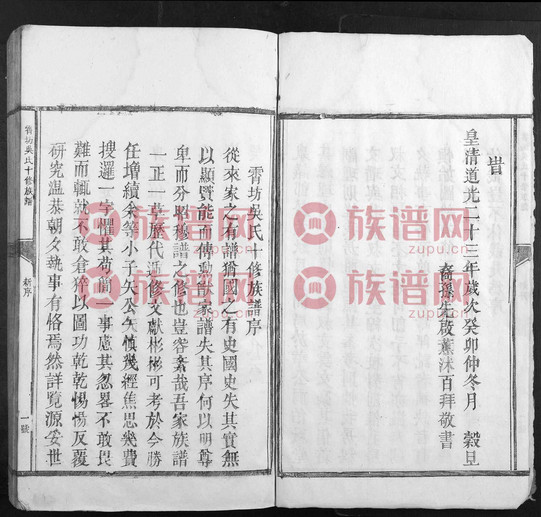 旹
皇清道光二十三年歲次癸卯仲冬月 穀旦
裔孫先啟薰沐百拜敬書
霄坊吳氏十修族譜序
從來家之有譜猶國之有史國史失其實無
以顯賢能而傳勳猷家譜失其序何以明尊
卑而分昭穆譜之修也豈容紊哉吾家族譜
一正一萬歷代遞修文獻彬彬可考於今勝
任增續余等小子矢公矢慎幾經焦思幾費
搜邏一字懼其苟簡一事慮其忽畧不敢畏
難而輒就不敢倉猝以圖功乾乾惕惕反覆
研究温恭朝夕執事有恪焉然詳覽源妥世
霄坊吳氏十修族譜
新序
一號
族谱网
zupu.cn
族谱网
zupu.cn
族谱网
zupu.cn
族谱网
zupu.cn